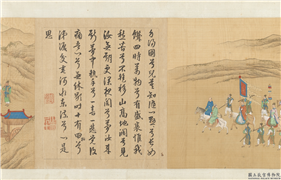 身歸國兮兒莫知隨心懸懸兮長如
飢四時萬物兮有盛衰唯我
愁苦兮不暫移山高地闊兮見
汝無期更深夜闌兮夢汝來
斯夢中執手兮一喜一悲覺後
痛吾心兮無休歇時十有四拍兮
涕淚交垂河水東流兮心是
思
國立故宮博物院